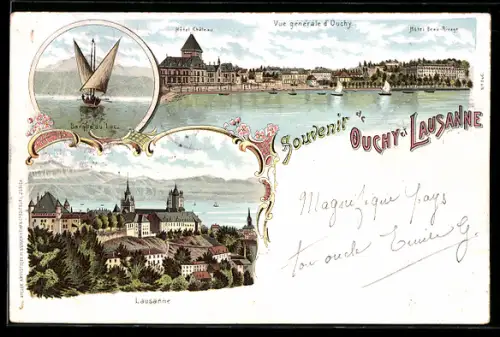 Hôtel Château
Vue générale d'Ouchy
Hôtel Beau-Rivage
Barque du Lac
Souvenir d'
OUCHY-LAUSANNE
Magnifique pays
ton oncle Emile G.
Lausanne